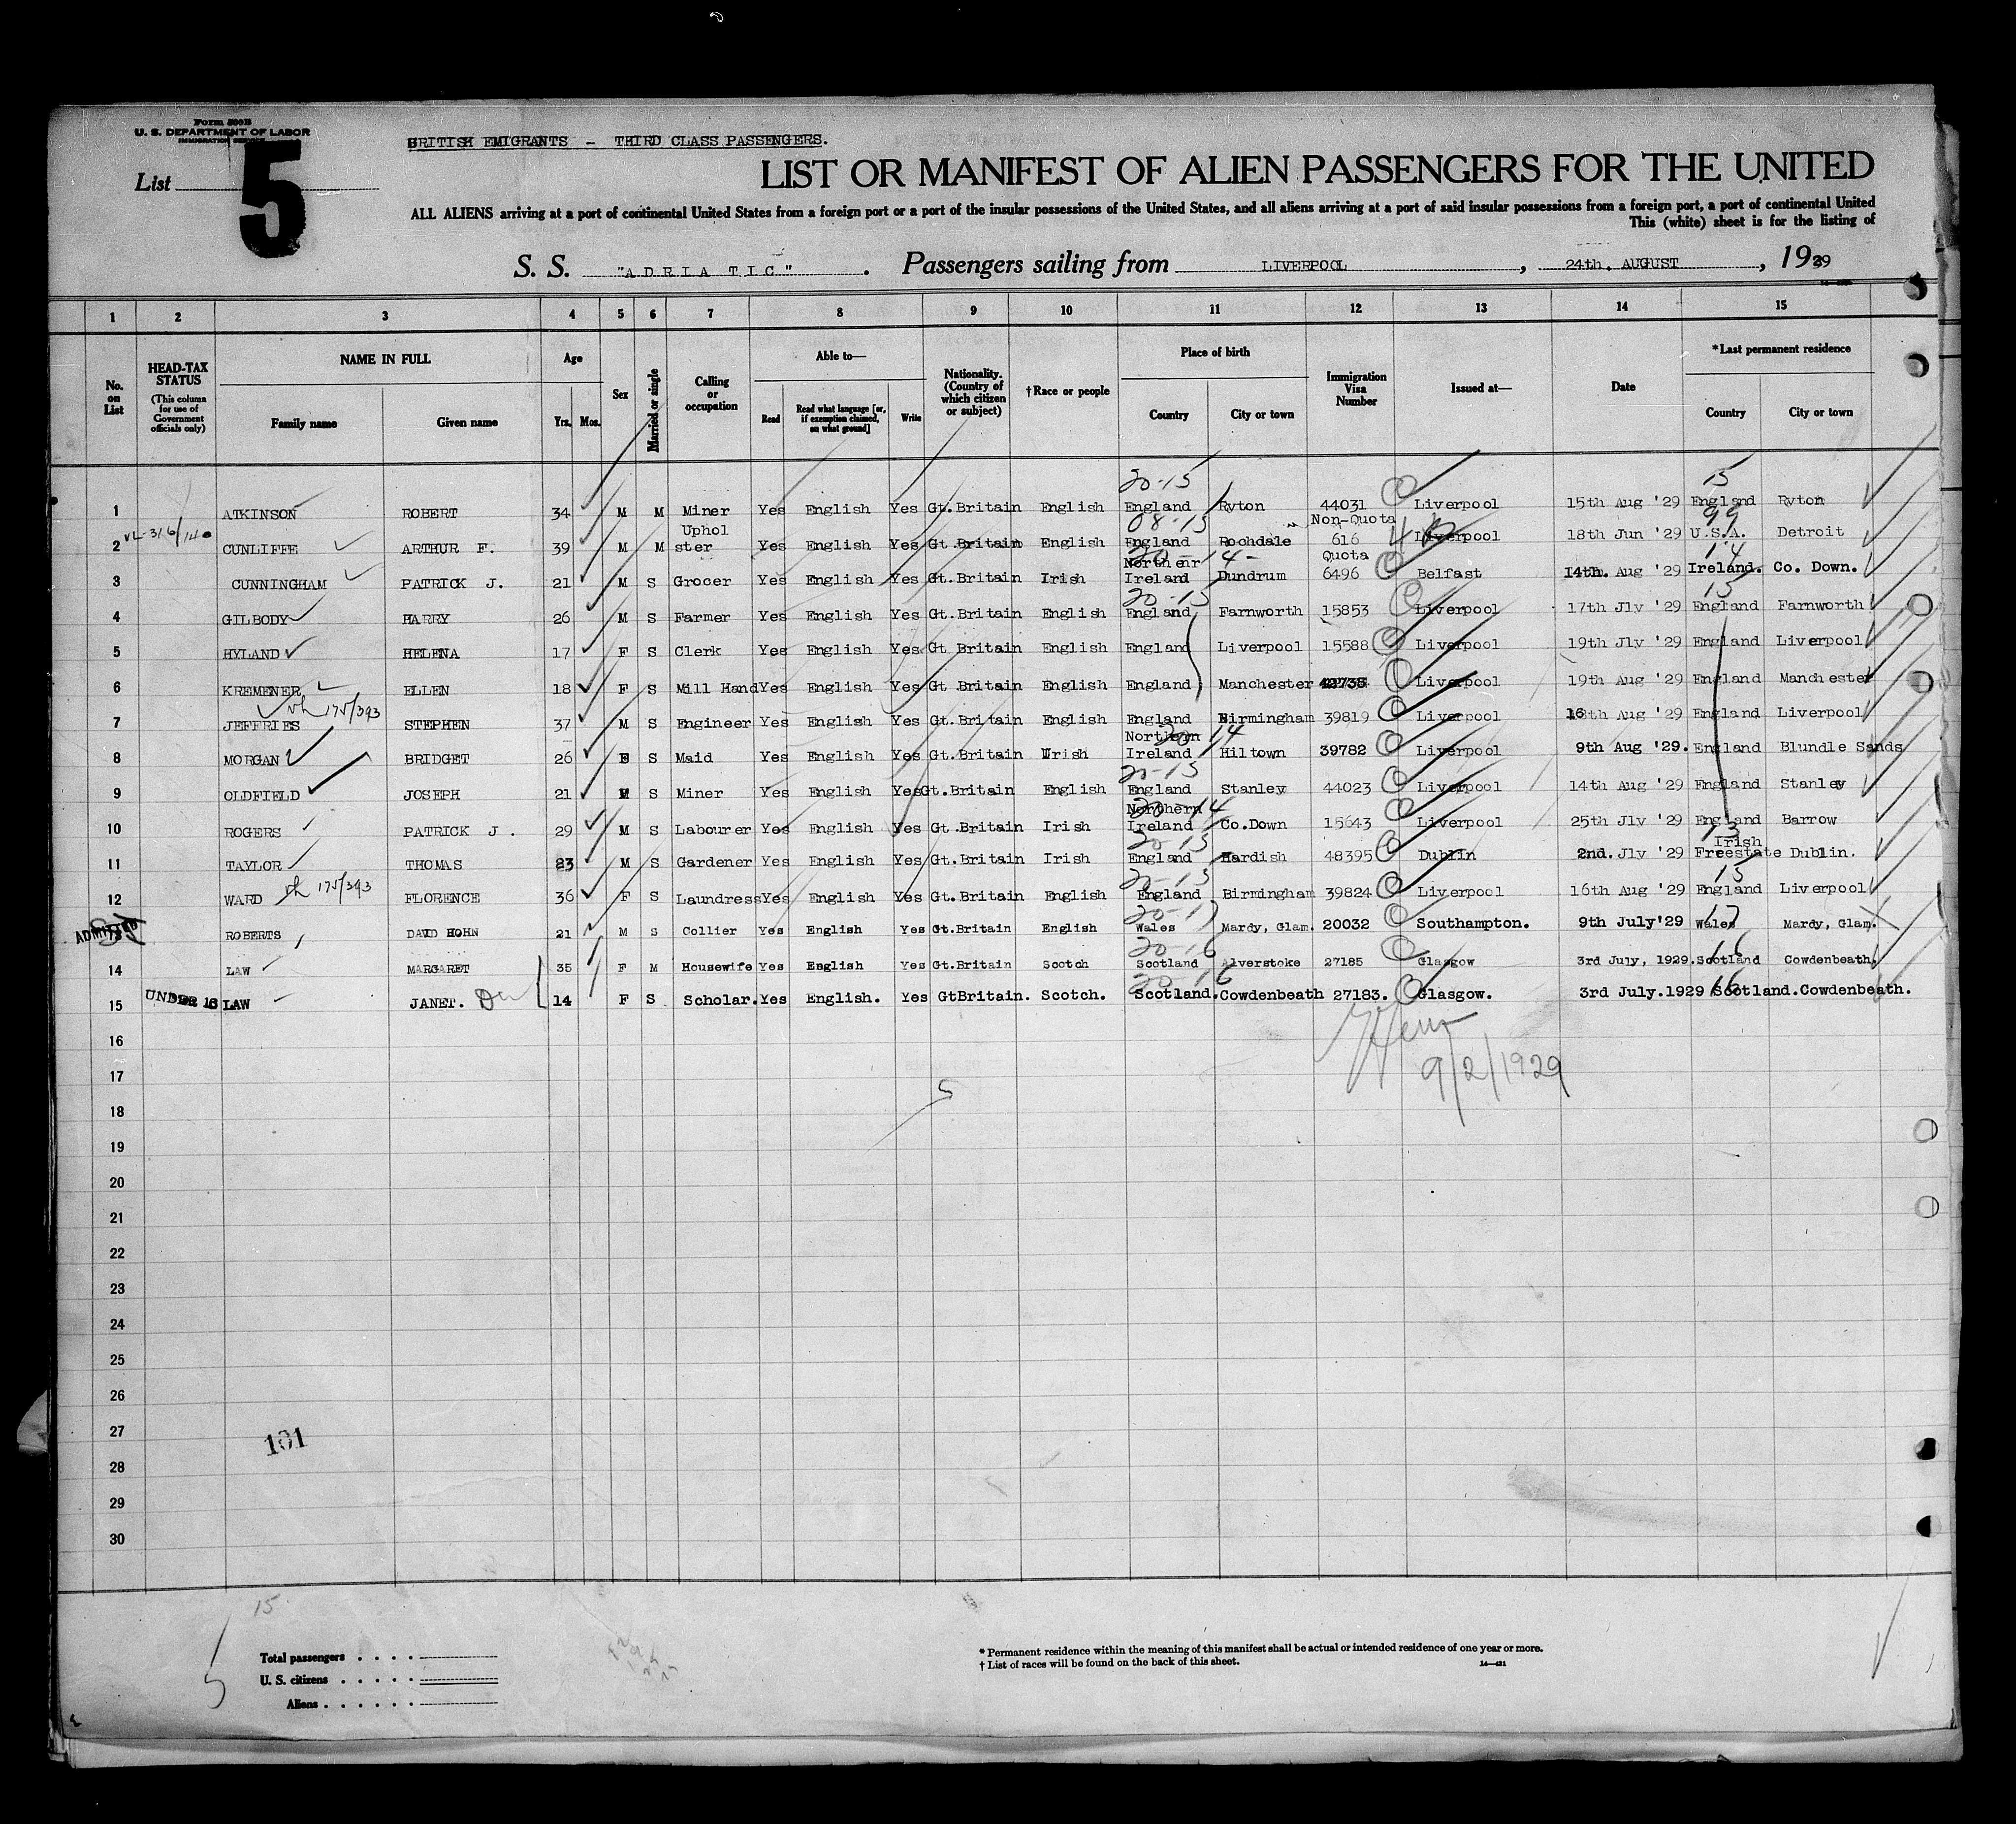 Form 500B
U. S. DEPARTMENT OF LABOR
IMMIGRATION SERVICE
BRITISH EMIGRANTS - THIRD CLASS PASSENGERS.
List 5
LIST OR MANIFEST OF ALIEN PASSENGERS FOR THE UNITED
ALL ALIENS arriving at a port of continental United States from a foreign port or a port of the insular possessions of the United States, and all aliens arriving at a port of said insular possessions from a foreign port, a port of continental United
This (white) sheet is for the listing of
S. S. "ADRIATIC" . Passengers sailing from LIVERPOOL , 24th. AUGUST , 1929
1 2 3 4 5 6 7 8 9 10 11 12 13 14 15
No. on List
HEAD-TAX STATUS (This column for use of Government officials only)
NAME IN FULL
Family name Given name
Age
Yrs. Mos.
Sex
Married or single
Calling or occupation
Able to—
Read Read what language [or, if exemption claimed, on what ground] Write
Nationality. (Country of which citizen or subject)
†Race or people
Place of birth
Country City or town
Immigration Visa Number
Issued at—
Date
*Last permanent residence
Country City or town
20-15 15
1 ATKINSON ROBERT 34 M M Miner Yes English Yes Gt.Britain English England Ryton 44031 Liverpool 15th Aug '29 England Ryton
VL-316/140 Uphol 08-15 Non-Quota 99
2 CUNLIFFE ARTHUR F. 39 M M ster Yes English Yes Gt.Britain English England Rochdale 616 Liverpool 18th Jun '29 U.S.A. Detroit
Northenr 20-14 Quota 14
3 CUNNINGHAM PATRICK J. 21 M S Grocer Yes English Yes Gt.Britain Irish Ireland Dundrum 6496 Belfast 14th. Aug '29 Ireland. Co. Down.
20-15 15
4 GILBODY HARRY 26 M S Farmer Yes English Yes Gt.Britain English England Farnworth 15853 Liverpool 17th Jly '29 England Farnworth
5 HYLAND HELENA 17 F S Clerk Yes English Yes Gt Britain English England Liverpool 15588 Liverpool 19th Jly '29 England Liverpool
6 KREMENER ELLEN 18 F S Mill Hand Yes English Yes Gt Britain English England Manchester 42735 Liverpool 19th Aug '29 England Manchester
175/393
7 JEFFRIES STEPHEN 37 M S Engineer Yes English Yes Gt. Britain English England Birmingham 39819 Liverpool 16th Aug '29 England Liverpool
Northern 20 14
8 MORGAN BRIDGET 26 S Maid Yes English Yes Gt.Britain Irish Ireland Hiltown 39782 Liverpool 9th Aug '29. England Blundle Sands
20-15
9 OLDFIELD JOSEPH 21 M S Miner Yes English Yes Gt.Britain English England Stanley 44023 Liverpool 14th Aug '29 England Stanley
Northern 20 14
10 ROGERS PATRICK J . 29 M S Labourer Yes English Yes Gt.Britain Irish Ireland Co.Down 15643 Liverpool 25th Jly '29 England Barrow
20-15 13 Irish
11 TAYLOR THOMAS 23 M S Gardener Yes English Yes Gt.Britain Irish England Hardish 48395 Dublin 2nd. Jly '29 Freestate Dublin.
175/393 20-15 15
12 WARD FLORENCE 36 F S Laundress Yes English Yes Gt.Britain English England Birmingham 39824 Liverpool 16th Aug '29 England Liverpool
20-17 17
ADMITTED ROBERTS DAVD HOHN 21 M S Collier Yes English Yes Gt.Britain English Wales Mardy, Glam. 20032 Southampton. 9th July'29 Wales Mardy, Glam.
20-16 16
14 LAW MARGARET 35 F M Housewife Yes English Yes Gt.Britain Scotch Scotland Alverstoke 27185 Glasgow 3rd July, 1929. Scotland Cowdenbeath.
20-16 16
15 UNDER 16 LAW JANET. 14 F S Scholar. Yes English. Yes GtBritain. Scotch. Scotland. Cowdenbeath 27183. Glasgow. 3rd July.1929 Scotland. Cowdenbeath.
16
9/2/1929
17
18
19
20
21
22
23
24
25
26
27
101
28
29
30
15
Total passengers
U. S. citizens
Aliens
5
* Permanent residence within the meaning of this manifest shall be actual or intended residence of one year or more.
† List of races will be found on the back of this sheet.